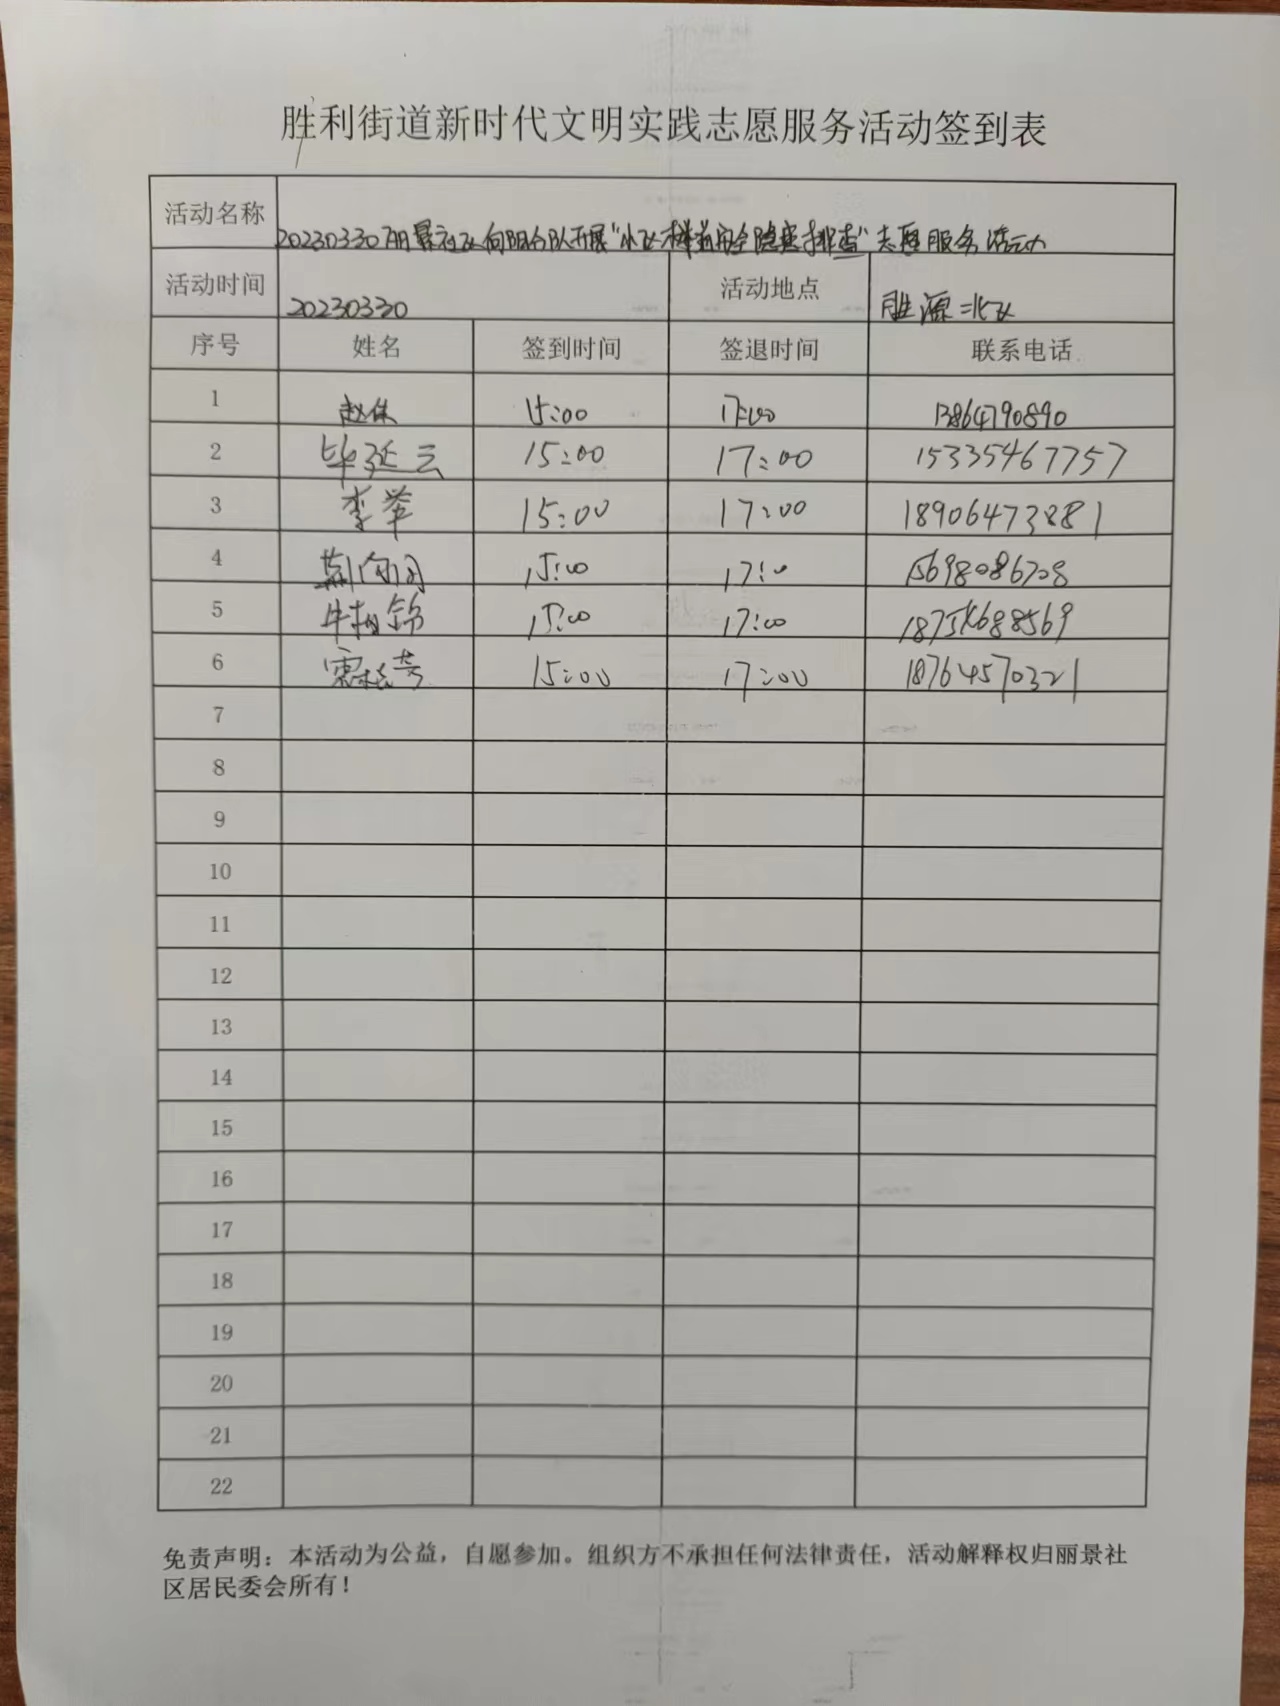 胜利街道新时代文明实践志愿服务活动签到表
活动名称 20230330丽景社区向阳分队开展"小区楼前安全隐患排查"志愿服务活动
活动时间 20230330 活动地点 胜源北区
序号 姓名 签到时间 签退时间 联系电话
1 赵 15:00 17:00 13864790890
2 毕延云 15:00 17:00 15335467757
3 李举 15:00 17:00 18906473881
4 荆 15:00 17:00 15698086708
5 牛 15:00 17:00
6 15:00 17:00 18764570321
7
8
9
10
11
12
13
14
15
16
17
18
19
20
21
22
免责声明：本活动为公益，自愿参加。组织方不承担任何法律责任，活动解释权归丽景社
区居民委会所有！